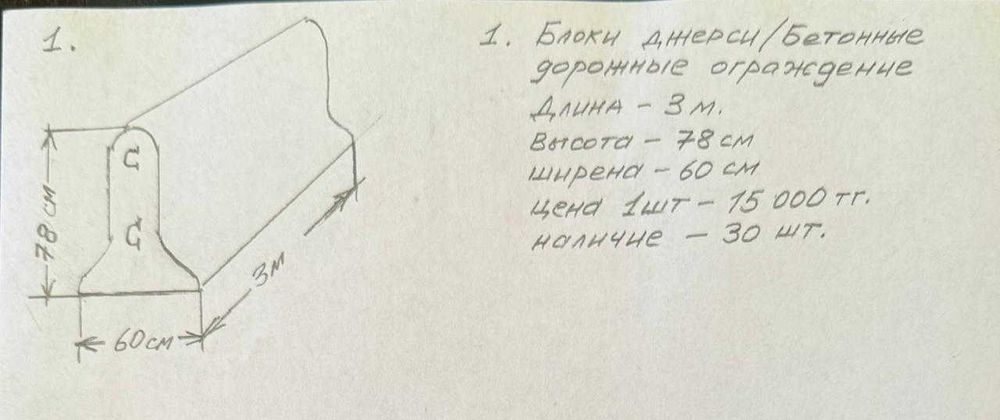 1.
78 см
60 см
3м
1. Блоки джерси/Бетонные
дорожные ограждение
Длина – 3 м.
Высота – 78 см
ширена – 60 см
цена 1шт – 15 000 тг.
наличие – 30 шт.